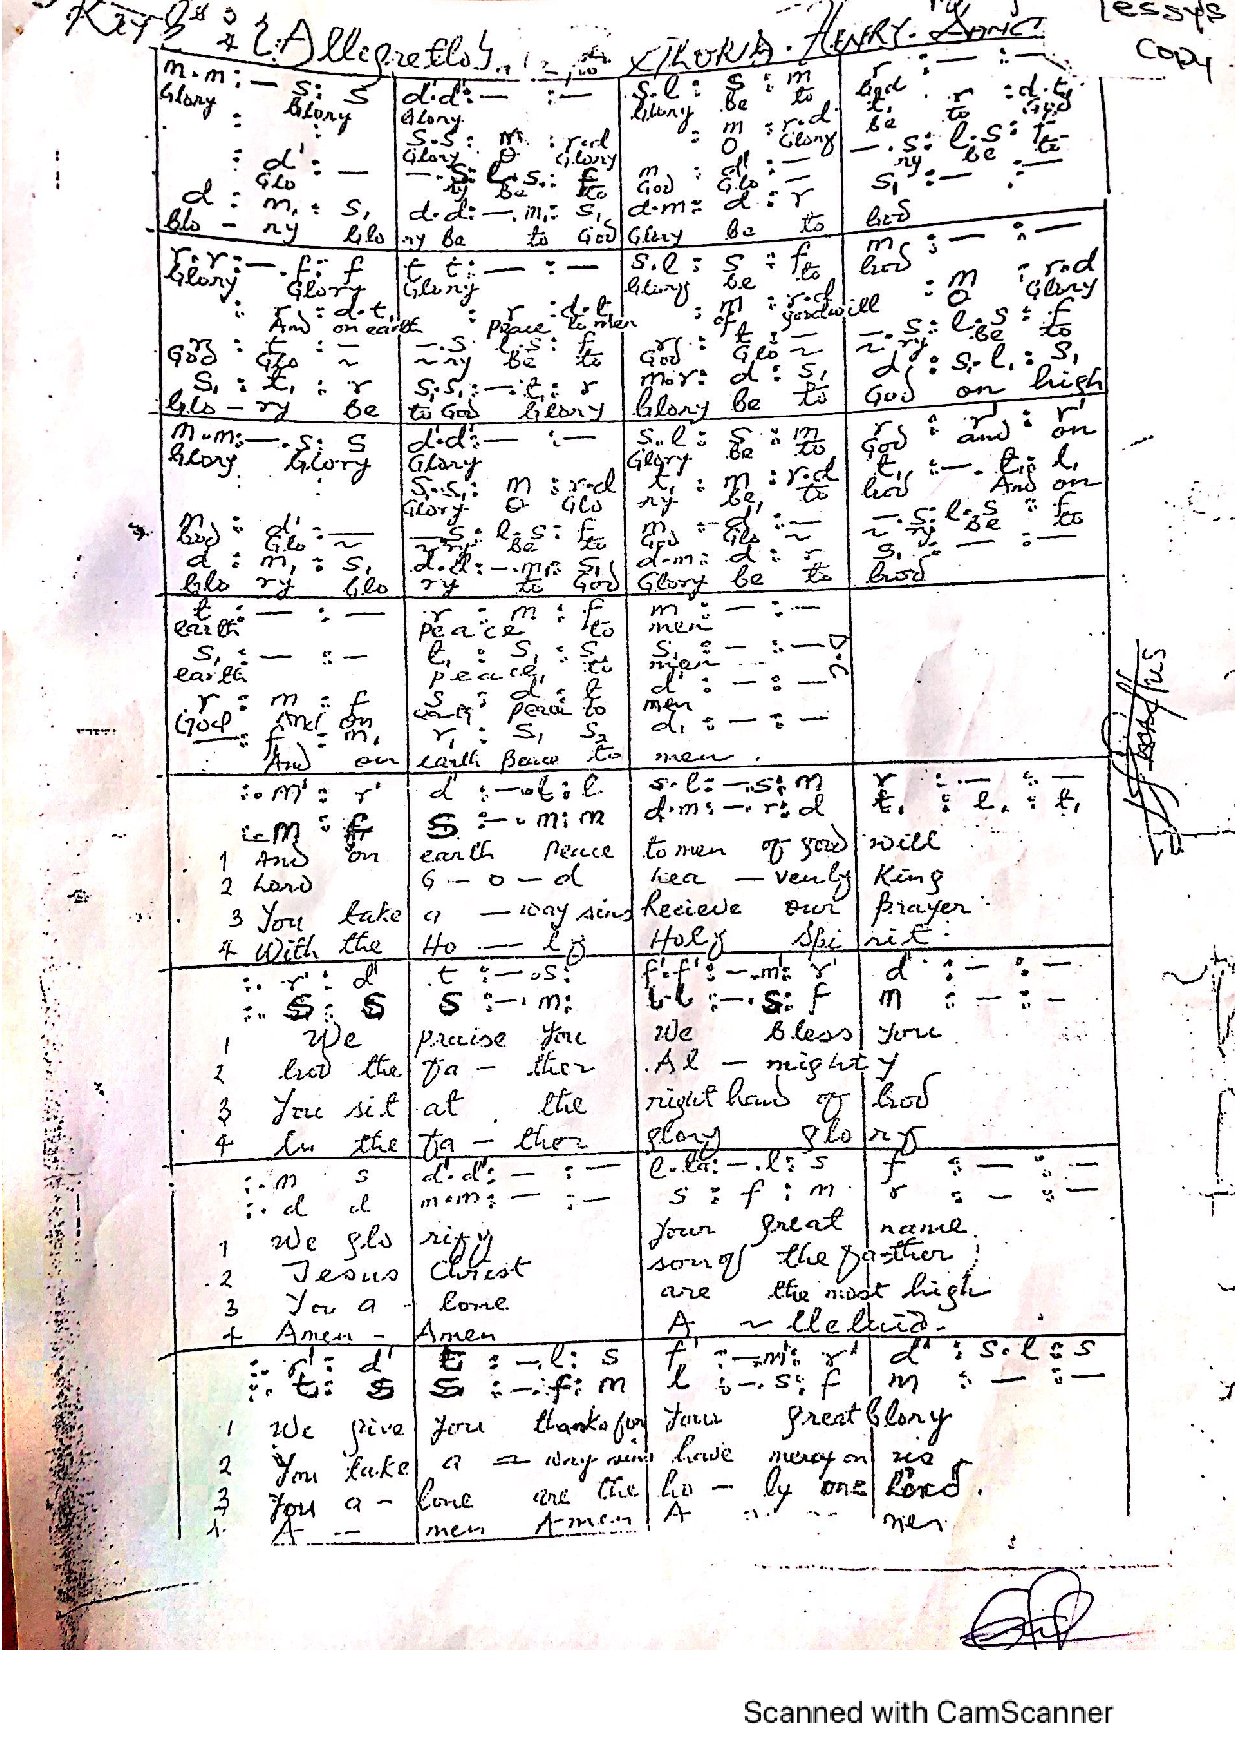 Allegretto HENRY.
copy
m.m:— s: s d.d:— :— s.l: s : m r : — : —
Glory Glory Glory Glory be to God
: : s.s: m : r.d : m : r.d t, : r : d.t,
Glory O Glory O Glory be to God
: d' : — —.s: l.s: f m : d' : — —.s: l.s: f
Glo ry Be to God Glo — ry be to
d : m, : s, d.d:—.m,: s, d.m: d : r s, : — : —
Glo – ry Glo ry Be to God Glory Be to God
r.r:—.f: f t t:— :— s.l: s : f m : — : —
Glory Glory Glory Glory be to God
: r : d.t, : r : d.t : m : r.d : m : r.d
And on earth peace to men of goodwill O Glory
r : t : — —.s l.s: f r : t : — —.s: l.s: f
God Glo ~ ~ ry Be to God Glo ~ ~ ry Be to
s, : t, : r s,s,:—.t,: r m.r: d : s, d : s.l, : s,
Glo – ry Be to God Glory Glory Be to God on high
m.m:—.s: s d.d:— :— s.l: s : m r : r' : r'
Glory Glory Glory Glory Be to God and on
: : s.s,: m : r.d t, : m : r.d t, : —. t, : l,
Glory O Glo ry be, to God And on
m : d' : — —.s: l.s: f m : d' : — —.s: l.s : f
God Glo ~ ~ ry Be to God Glo ~ ~ ry Be to
d : m, : s, d.d:—.m,: s, d.m: d : r s, : — : —
Glo ry Glo ry to God Glory be to God
t : — : — r : m : f m : — : —
earth peace to men
s, : — : — t, : s, : s, s, : — : — D.C
earth peace, to men
r : m : f s : d : t d' : — : —
God And on earth peace to men
: f : m, r, : s, s, d, : — : —
And on earth Peace to men.
:. m' : r' d' :—.t: l s.l:—.s: m r : — : —
:. m : f s :—.m: m d.m:—.r: d t, : l, : t,
1 And on earth Peace to men of good will
2 Lord G – o – d hea – venly King
3 You take a — way sins Recieve our Prayer
4 With the Ho — ly Holy Spi rit.
:. r' : d' t :—.s: f'.f':—.m': r' d' : — : —
:. s : s s :—.m: l.l :—.s: f m : — : —
1 We praise You We bless You
2 God the Fa – ther Al – might y
3 You sit at the right hand of God
4 In the Fa – ther glory glo ry
:. m s d'.d': — : — l.ta:—.l: s f : — : —
:. d d m.m: — : — s : f : m r : — : —
1 We glo rify Your great name
2 Jesus Christ son of the Father
3 You a – lone are the most high
4 Amen – Amen A ~ lleluia.
:. r' : d' t : —.l: s f' :—.m': r' d' : s.l: s
:. t : s s : —.f: m l :—.s: f m : — : —
1 We give You thanks for Your great Glory
2 You take a – way sins have mercy on us
3 You a – lone are the ho – ly one Lord.
4. A – men Amen A – – men
Scanned with CamScanner